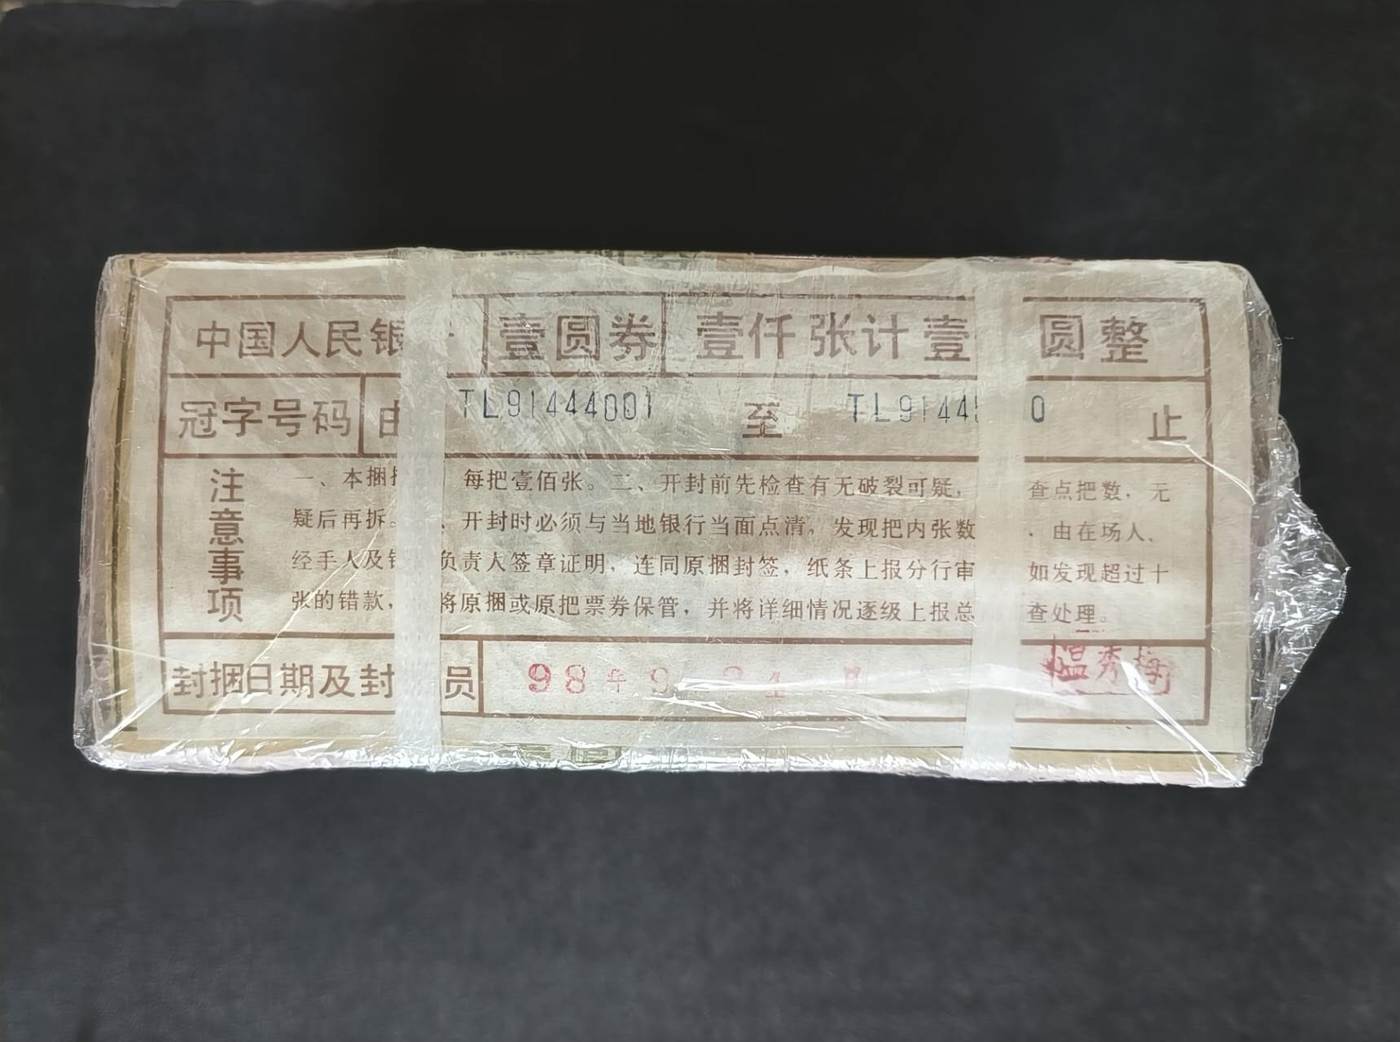 中国人民银 壹圆券 壹仟张计壹 圆整
冠字号码 由 TL91444001 至 TL9144 0 止
注意事项
一、本捆 每把壹佰张。二、开封前先检查有无破裂可疑， 查点把数，无
疑后再拆。 、开封时必须与当地银行当面点清。发现把内张数 ，由在场人、
经手人及 负责人签章证明，连同原捆封签，纸条上报分行审 如发现超过十
张的错款， 将原捆或原把票券保管，并将详细情况逐级上报总 查处理。
封捆日期及封 员 98年9 24 温秀梅